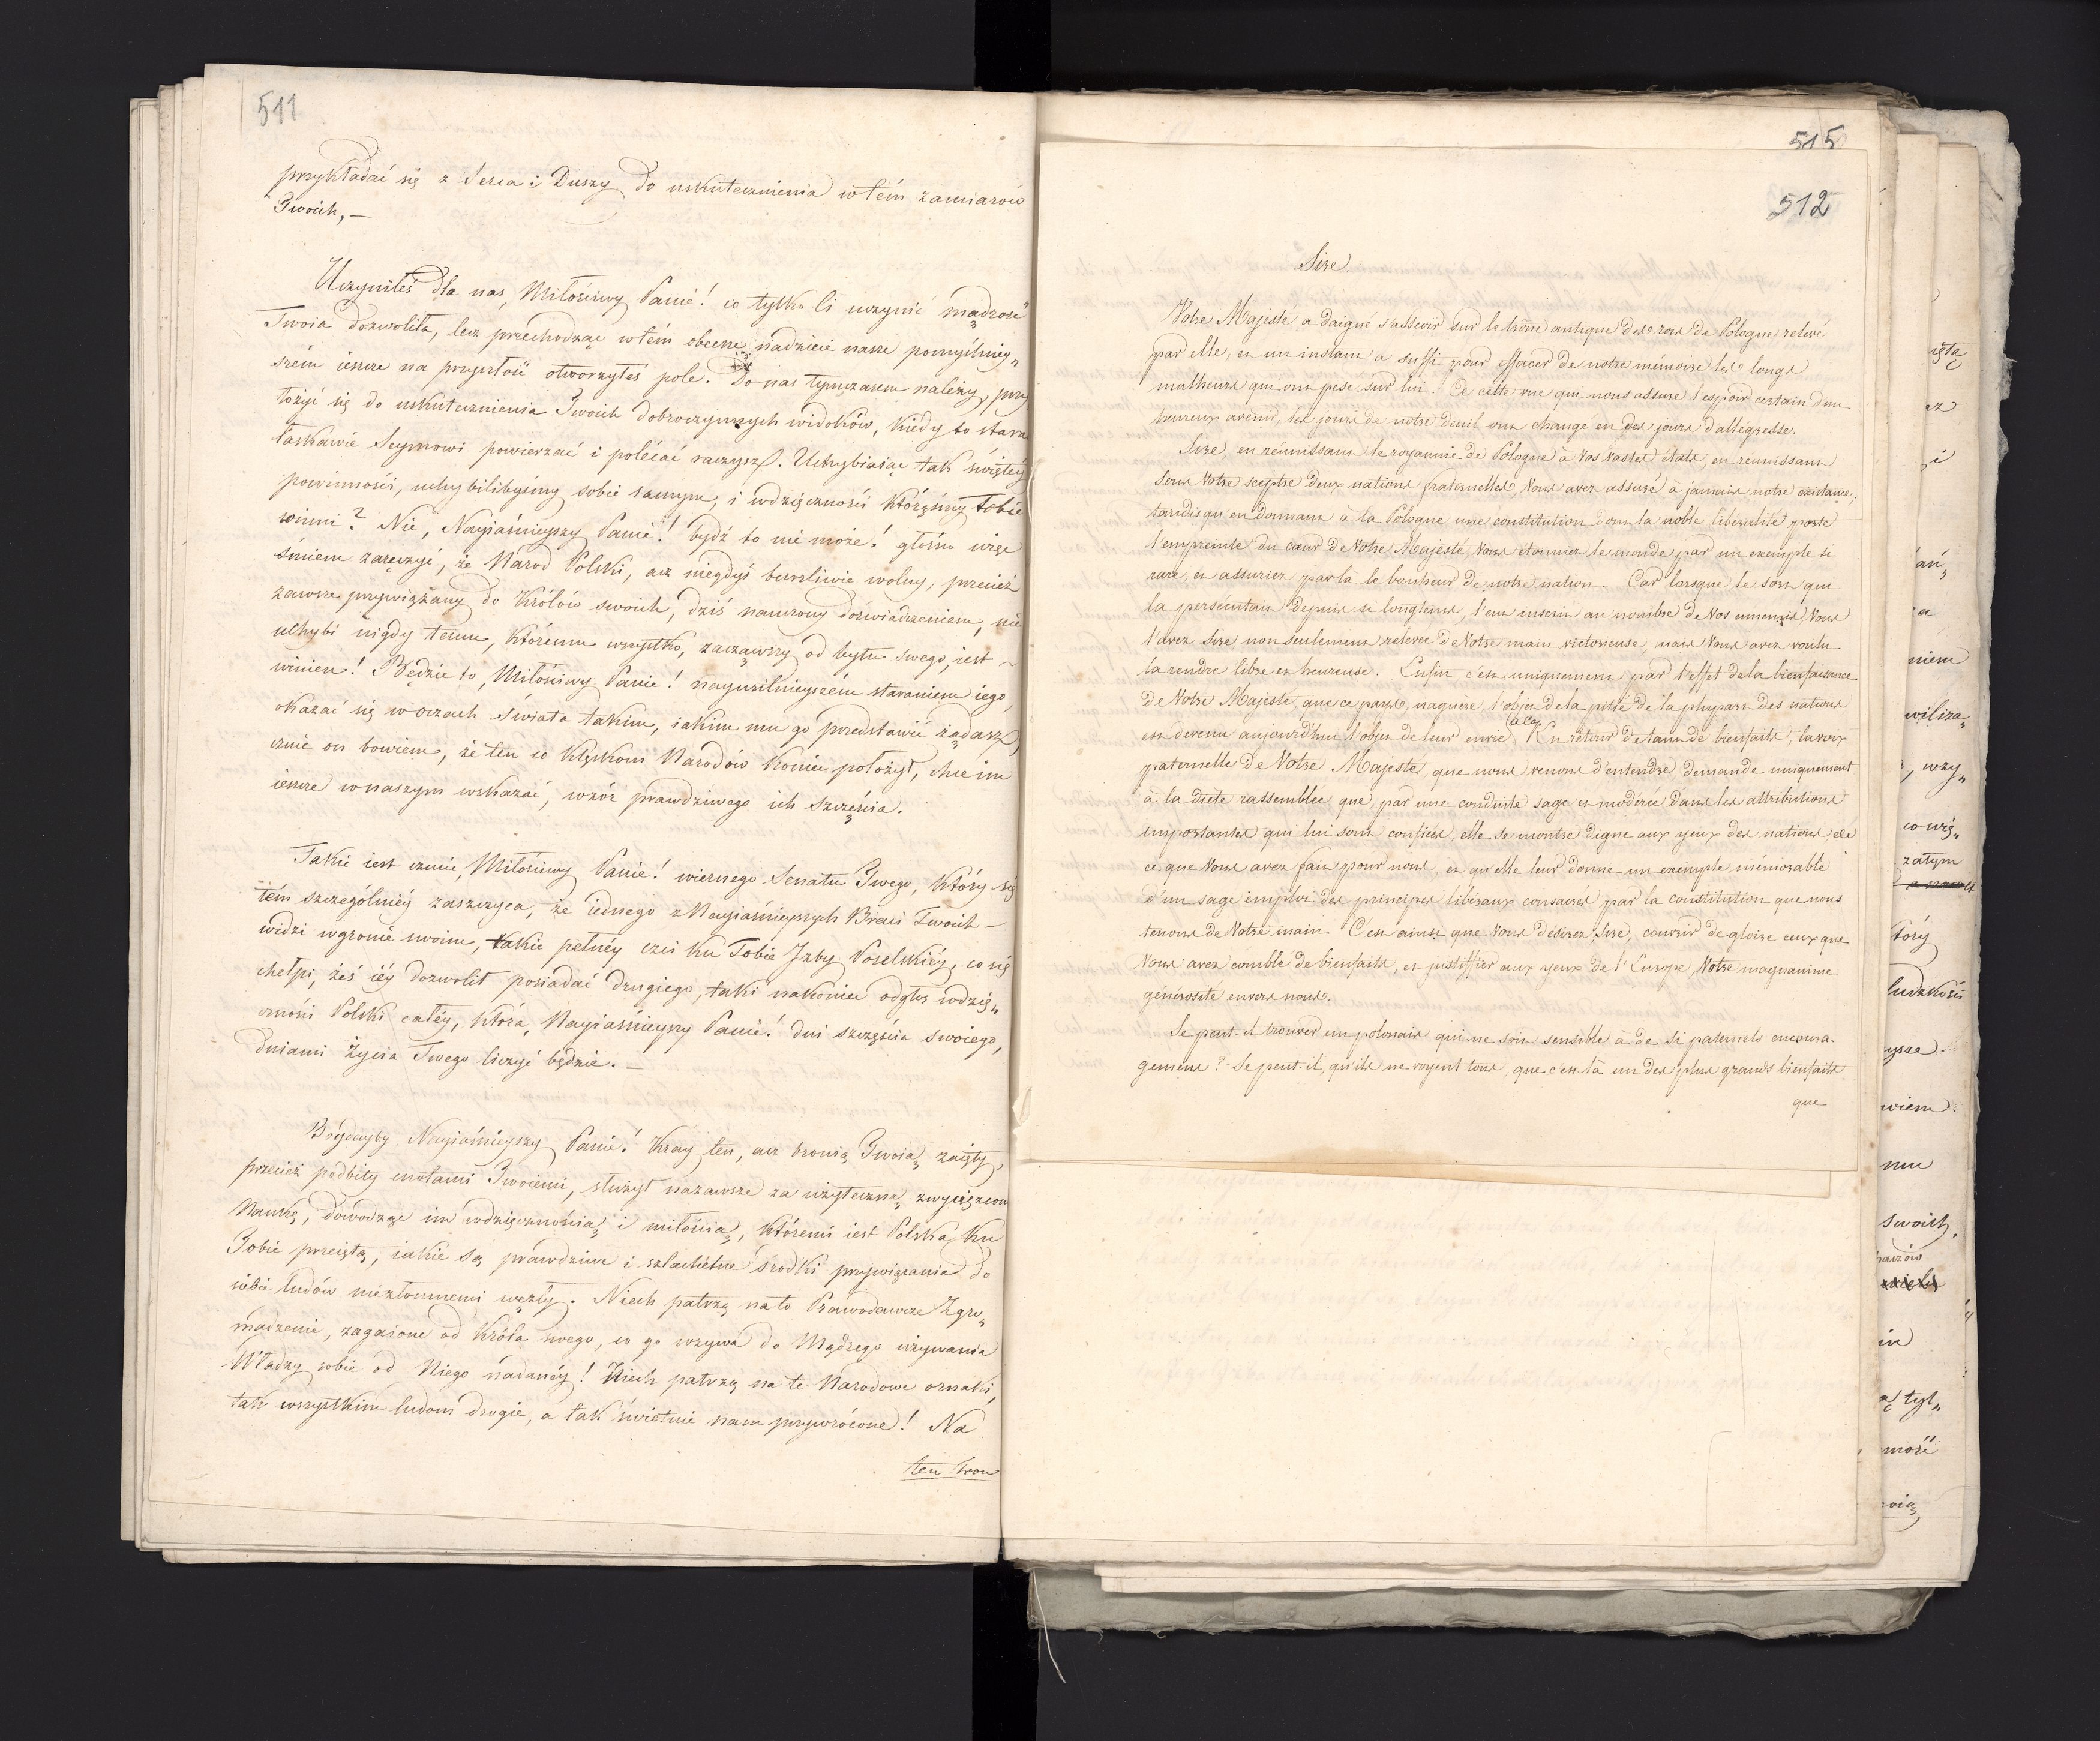 511
przykładać się z Serca i Duszy do uskutecznienia w tém zamiarów
Twoich, —
Uczyniłeś dla nas, Miłościwy Panie! co tylko li uczynić mądrość
Twoia dozwoliła, lecz przechodząc w tém obecne nadzieie nasze pomyślniey„
szém ieszcze na przyszłość otworzyłeś pole. Do nas tymczasem należy, przy
łożyć się do uskutecznienia Twoich dobroczynnych widoków, kiedy to
łaskawie Seymowi powierzać i polécać raczysz. Uchybiaiąc tak świętéy
powinności, uchybilibyśmy sobie samym, i wdzięczności któréśmy Tobie
winni? Nie, Nayiaśnieyszy Panie! bydź to nie może! głośno więc
śmiem zaręczyć, że Naród Polski, acz niegdyś burzliwie wolny, przecież
zawsze przywiązany do Królów swoich, dziś nauczony doświadczeniem, nie
uchybi nigdy temu, któremu wszystko, zacząwszy od bytu swego, iest –
winien! Będzie to, Miłościwy Panie! nayusilnieyszém staraniem iego,
okazać się w oczach świata takim, iakim mu go przedstawić żądasz,
czuie on bowiem, że ten co klęskom Narodów koniec położył, chce im
ieszcze w naszym wskazać, wzór prawdziwego ich szczęścia.
Takie iest czucie, Miłościwy Panie! wiernego Senatu Twego, który się
tém szczególniéy zaszczyca, że iednego z Nayiaśnieyszych Braci Twoich –
widzi w gronie swoim, takie pełnéy czci ku Tobie Izby Poselskiéy, co się
chełpi, żeś iéy dozwolił posiadać drugiego, taki nakoniec odgłos wdzię„
czności Polski całéy, która, Nayiaśnieyszy Panie! dni szczęścia swoiego,
dniami życia Twego liczyć będzie. —
Bógdayby Nayiaśnieyszy Panie! Kray ten, acz bronią Twoią zaięty,
przecież podbity cnotami Twoiemi, służył nazawsze za użyteczną zwycięzcom
Naukę, dowodząc im wdzięcznością i miłością, któremi iest Polska ku
Tobie przeiętą, iakie są prawdziwe i szlachetne środki przywiązania do
siebie ludów niezłomnemi węzły. Niech patrzą na to Prawodawcze Zgro„
madzenie, zagaione od Króla swego, co go wzywa do Mądrego używania
Władzy sobie od Niego nadanéy! Niech patrzą na te Narodowe oznaki,
tak wszystkim ludom drogie, a tak świetnie nam przywrócone! Na
ten tron
515
512
Sire.
Votre Majesté a daigné s'asseoir sur le trône antique des rois de Pologne relevé
par elle, et un instant a suffi pour effacer de notre mémoire les longs
malheurs qui ont pesé sur lui. De cette vue qui nous assure l'espoir certain d'un
heureux avenir, les jours de notre deuil ont changé en des jours d'allégresse.
Sire, en réunissant le royaume de Pologne à Vos vastes états, en réunissant
sous Votre sceptre deux nations fraternelles, Vous avez assuré à jamais notre existance,
tandis qu'en donnant à la Pologne une constitution dont la noble libéralité porte
l'empreinte du cœur de Votre Majesté, Vous étonniez le monde par un exemple si
rare, et assuriez par là le bonheur de notre nation. Car lorsque le sort qui
la persécutait depuis si longtems, l'eut inscrit au nombre de Vos ennemis, Vous
l'avez Sire non seulement relevée de Votre main victorieuse, mais Vous avez voulu
la rendre libre et heureuse. Enfin c'est uniquement par l'effet de la bienfaisance
de Votre Majesté, que ce pays, naguère, l'objet de la pitié de la plupart des nations
est devenu aujourd'hui l'objet de leur envie. En retour de tant de bienfaits, la voix
paternelle de Votre Majesté que nous venons d'entendre demande uniquement
à la diète rassemblée que, par une conduite sage et modérée dans les attributions
importantes qui lui sont confiées, elle se montre digne aux yeux des nations de
ce que Vous avez fait pour nous, et qu'elle leur donne un exemple mémorable
d'un sage emploi des principes libéraux consacrés par la constitution que nous
tenons de Votre main. C'est ainsi que Vous désirez, Sire, couvrir de gloire ceux que
Vous avez comblé de bienfaits, et justifier aux yeux de l'Europe, Votre magnanime
générosité envers nous.
Se peut-il trouver un polonais qui ne soit sensible à de si paternels encoura-
gemens? Se peut-il, qu'ils ne voyent tous, que c'est là un des plus grands bienfaits
que
niem
wiliza„
, wzy„
co wię„
zatym
tóry
ludzkości
wiem
nu
swoich,
ą tyl„